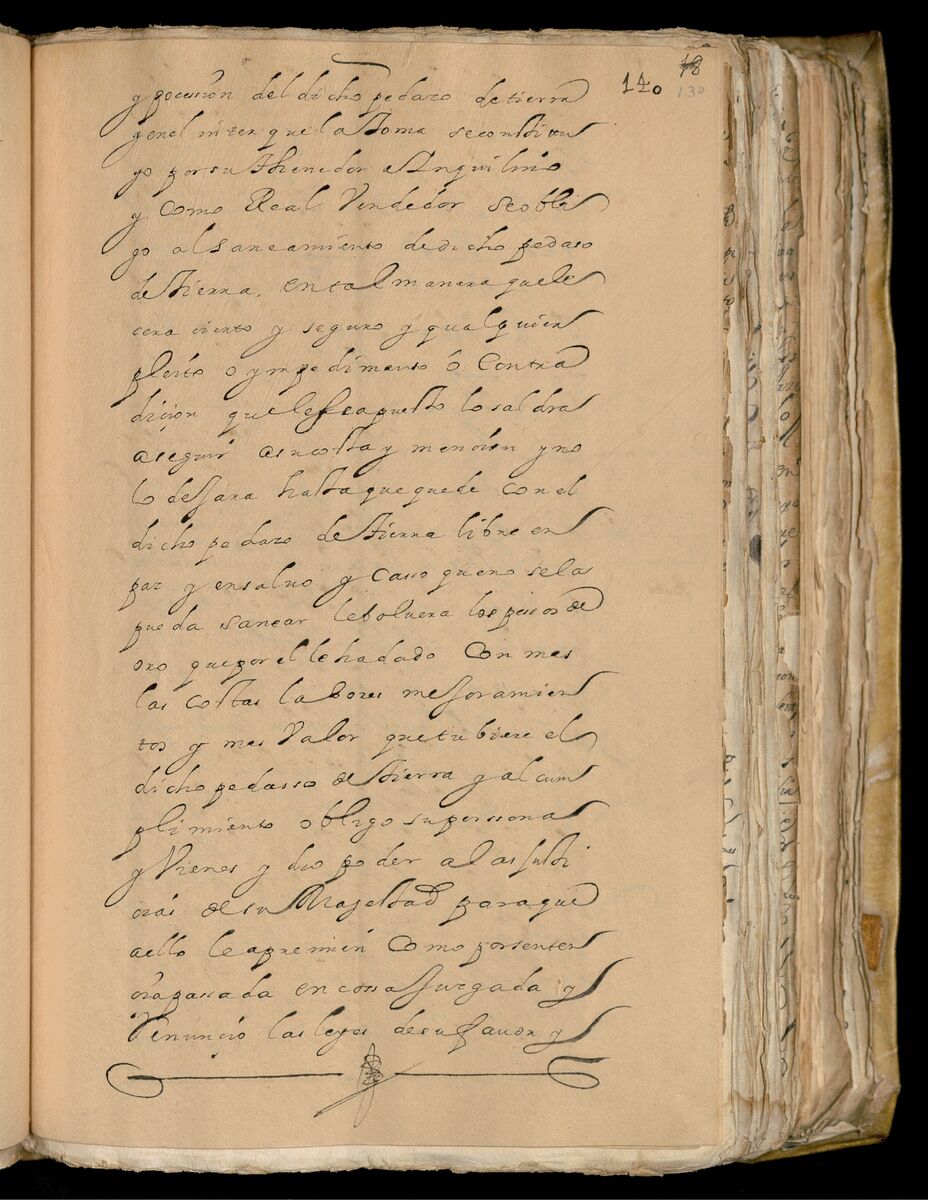 18
140
130
y pocesion del dicho pedaco de tierra
y en el inter que la toma se constituy
yo por su thenedor e Ynquilino
y como Real Vendedor se obli
go al saneamiento de dicho pedaso
de tierra, en tal manera que le
cera cierto y seguro y qualquier
pleito o ympedimento ô contra
diçion que le sea puesto lo saldra
a seguir a su costa y mencion y no
lo dessara hasta que quede con el
dicho pedazo de tierra libre en
paz y en saluo y casso que no se la
pueda sanear le boluera los pesos de
oro que por el le ha dado con mas
las costas labores messoramien
tos y mas Valor que tubiere el
dicho pedasso de tierra y al cum
plimiento obligo su perssona
y Vienes y dio poder a las justi
cias de su Magestad para que
a ello le apremien como por senten
cia passada en cossa jusgada y
Renunciò las leyes de su fauor y